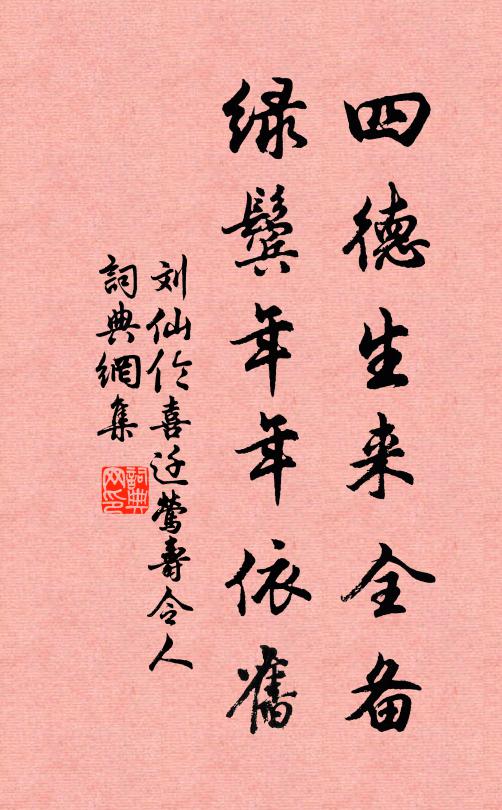 四德生来全备
绿鬓年年依舊
刘仙伦喜迁莺壽令人
詞典網集
詞典网印